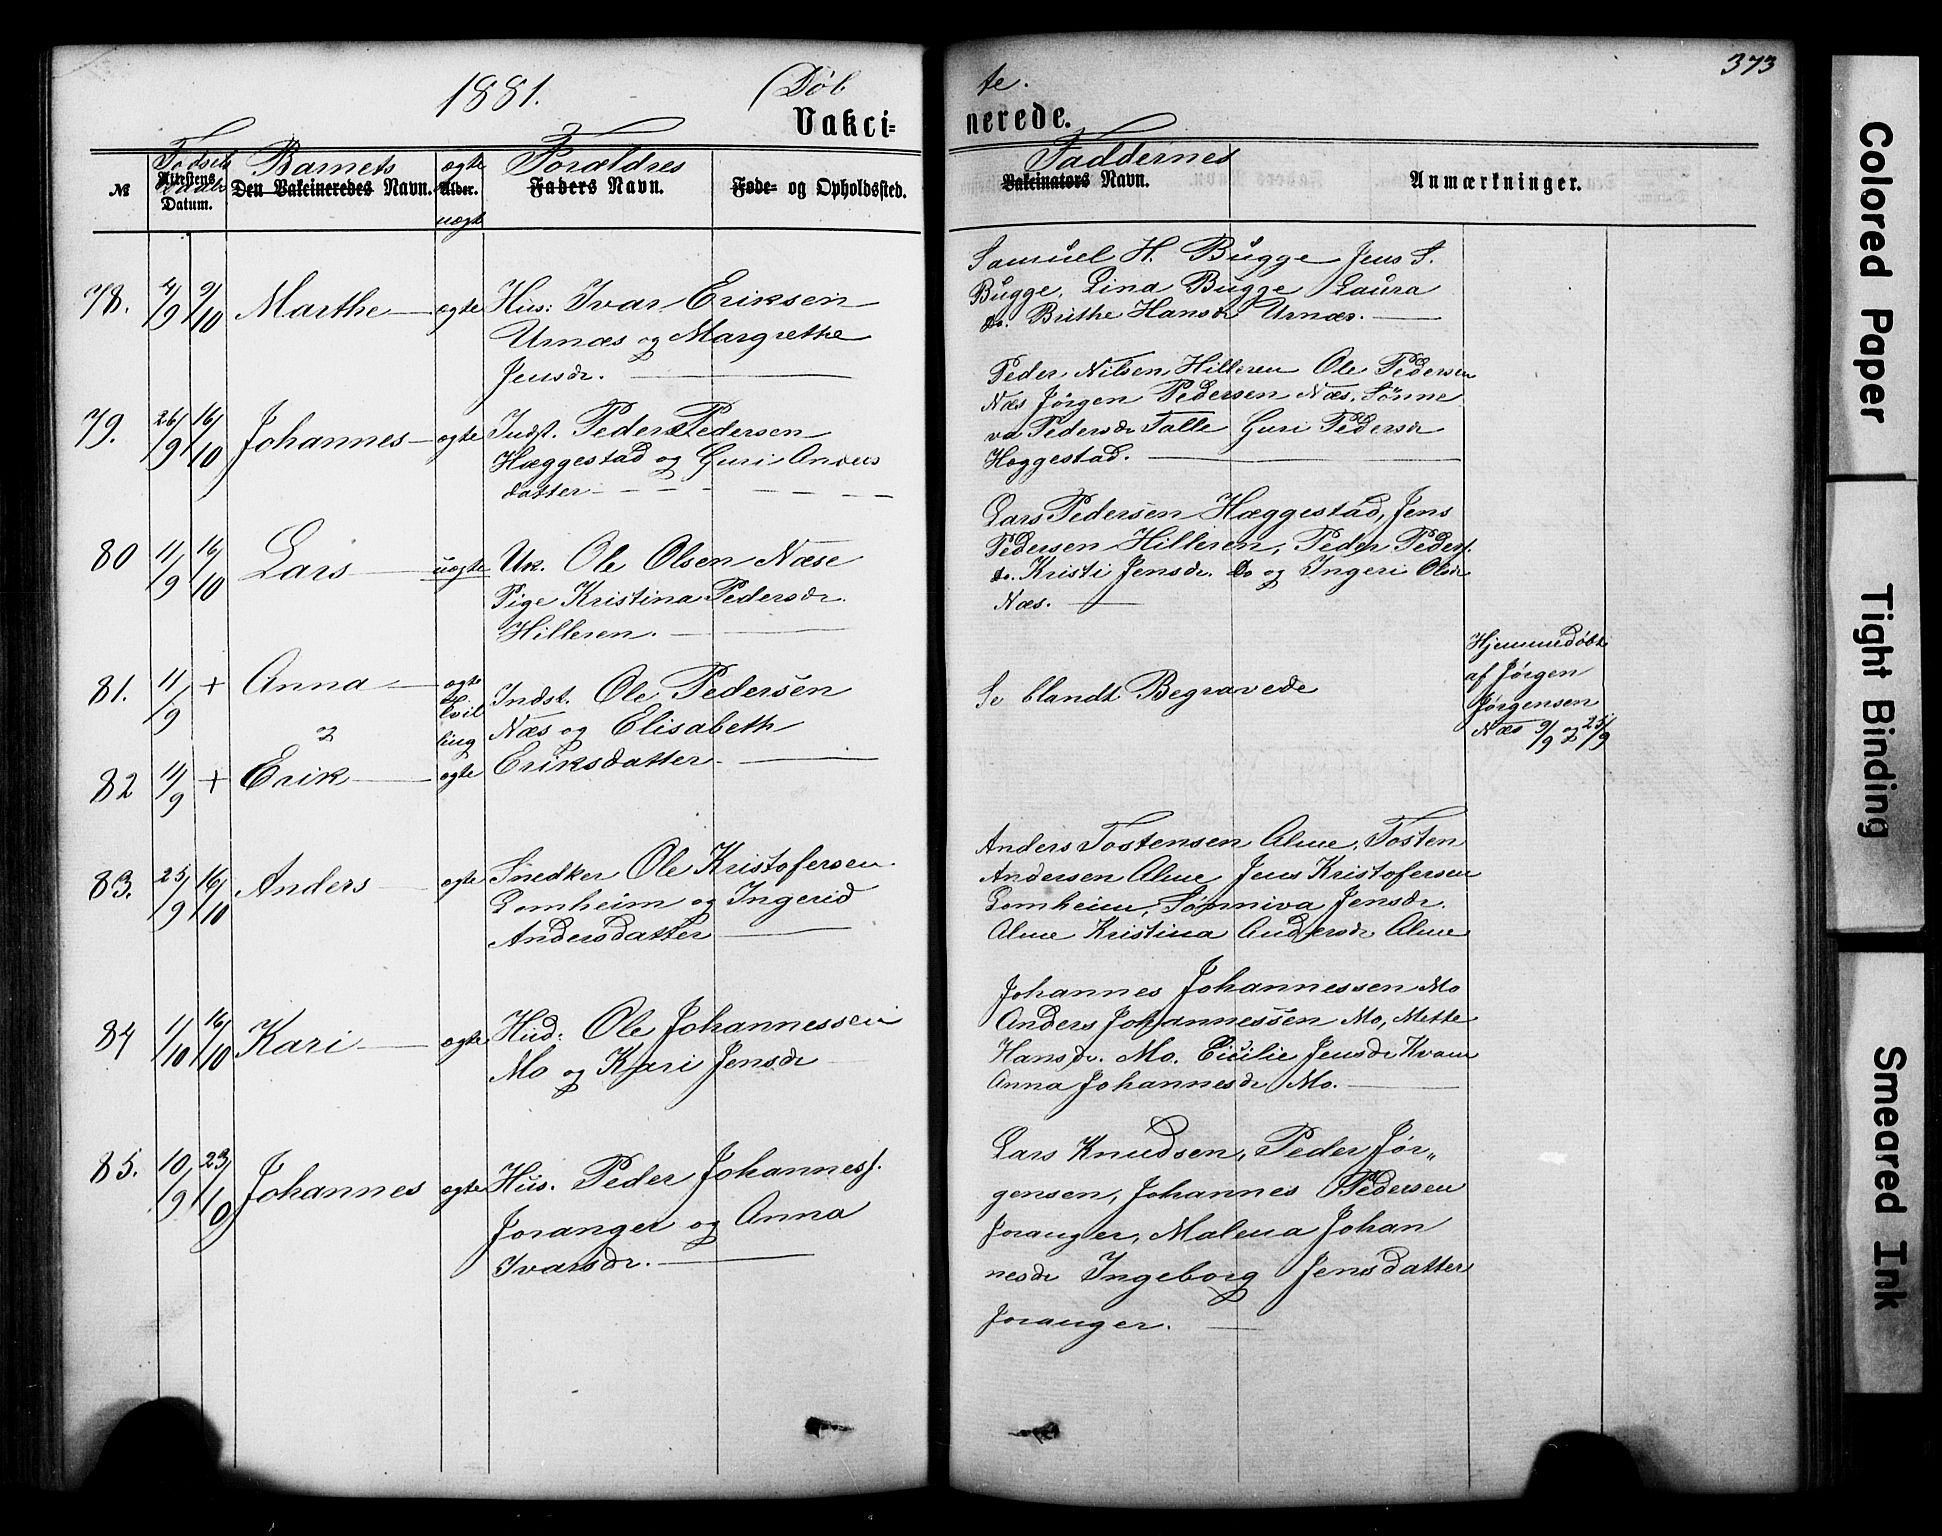 1881. (Døb
te.
373
Vakci=
nerede.
Fødsels Barnets ægte Forældres
Faddernes
№ Attestens Datum. Den Vakcineredes Navn. Alder. Faders Navn. Føde- og Opholdssted.
uægte
Vakcinators Navn. Anmærkninger.
78. 4/9 9/10 Marthe ægte Hus: Ivar Eriksen
Urnæs og Margrethe
Jensdr.
Samuel H. Bugge Jens S.
Bugge, Lina Bugge Laura
do. Brithe Hansdr Urnæs.
79. 26/9 16/10 Johannes ægte Indst. Peder Pedersen
Hæggestad og Guri Anders
datter
Peder Nilsen Hilleren Ole Pedersen
Næs Jørgen Pedersen Næs, Sönne
va Pedersdr Talle Guri Pedersdr
Heggestad.
80 11/9 16/10 Lars uægte Uk. Ole Olsen Næse
Pige Kristina Pedersdr.
Hilleren.
Lars Pedersen Hæggestad, Jens
Pedersen Hilleren, Peder Peders.
do. Kristi Jensdr. do og Ingeri Olsdr
Næs.
81. 11/9 + Anna ægte
Tvil
ling
Indst. Ole Pedersen
Næs og Elisabeth
Eriksdatter
82 11/9 + Erik ægte
Se blandt Begravede
Hjemmedøbt
af Jörgen
Jørgensen
Næs 9/9 og 25/9
83. 25/9 16/10 Anders ægte Snedker Ole Kristofersen
Lomheim og Ingerid
Andersdatter
Anders Tostensen Alme, Tosten
Andersen Alme Jens Kristofersen
Lomheim, Sønniva Jensdr.
Alme Kristina Andersdr Alme
84 1/10 16/10 Kari ægte Hud: Ole Johannessen
Mo og Kari Jensdr
Johannes Johannessen Mo
Anders Johannessen Mo, Mette
Hansdr. Mo. Cicilie Jensdr Kvam
Anna Johannesdr Mo.
85. 10/9 23/10 Johannes ægte Hus. Peder Johanness.
Joranger og Anna
Ivarsdr.
Lars Knudsen, Peder Jør„
gensen, Johannes Pedersen
Joranger, Malena Johan
nesdr Ingeborg Jensdatter
Joranger.
Colored Paper
Tight Binding
Smeared Ink